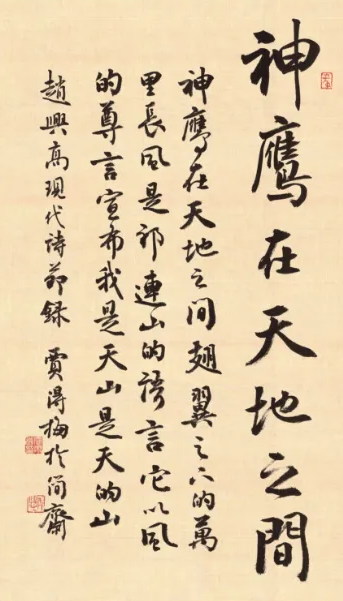 神鷹在天地之間
神鷹在天地之間翅翼之下的萬
里長風是祁連山的語言它以風
的尊言宣布我是天山是天的山
趙興高現代詩節録 賈得梅於簡齋